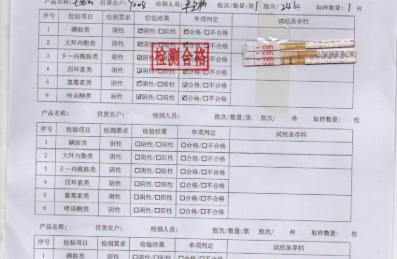 产品名称: 供货农户: 检测人员: 批次/数量:第1 取样数量:1 枚
序号 检验项目 检测要求 检验结果 单项判定 试纸条存档
1 磺胺类 阴性 ☑阴性/□阳性 ☑合格/□不合格
2 大环内酯类 阴性 ☑阴性/□阳性 ☑合格/□不合格
3 β一内酰胺类 阴性 ☑阴性/□阳性 ☑合格/□不合格
4 四环素类 阴性 ☑阴性/□阳性 ☑合格/□不合格
5 氯霉素类 阴性 ☑阴性/□阳性 ☑合格/□不合格
6 喹诺酮类 阴性 ☑阴性/□阳性 ☑合格/□不合格
检测合格
产品名称: 供货农户: 检测人员: 批次/数量:第 批次/ 件 取样数量: 枚
序号 检验项目 检测要求 检验结果 单项判定 试纸条存档
1 磺胺类 阴性 □阴性/□阳性 □合格/□不合格
2 大环内酯类 阴性 □阴性/□阳性 □合格/□不合格
3 β一内酰胺类 阴性 □阴性/□阳性 □合格/□不合格
4 四环素类 阴性 □阴性/□阳性 □合格/□不合格
5 氯霉素类 阴性 □阴性/□阳性 □合格/□不合格
6 喹诺酮类 阴性 □阴性/□阳性 □合格/□不合格
产品名称: 供货农户: 检测人员: 批次/数量:第 批次/ 件 取样数量: 枚
序号 检验项目 检测要求 检验结果 单项判定 试纸条存档
1 磺胺类 阴性 □阴性/□阳性 □合格/□不合格